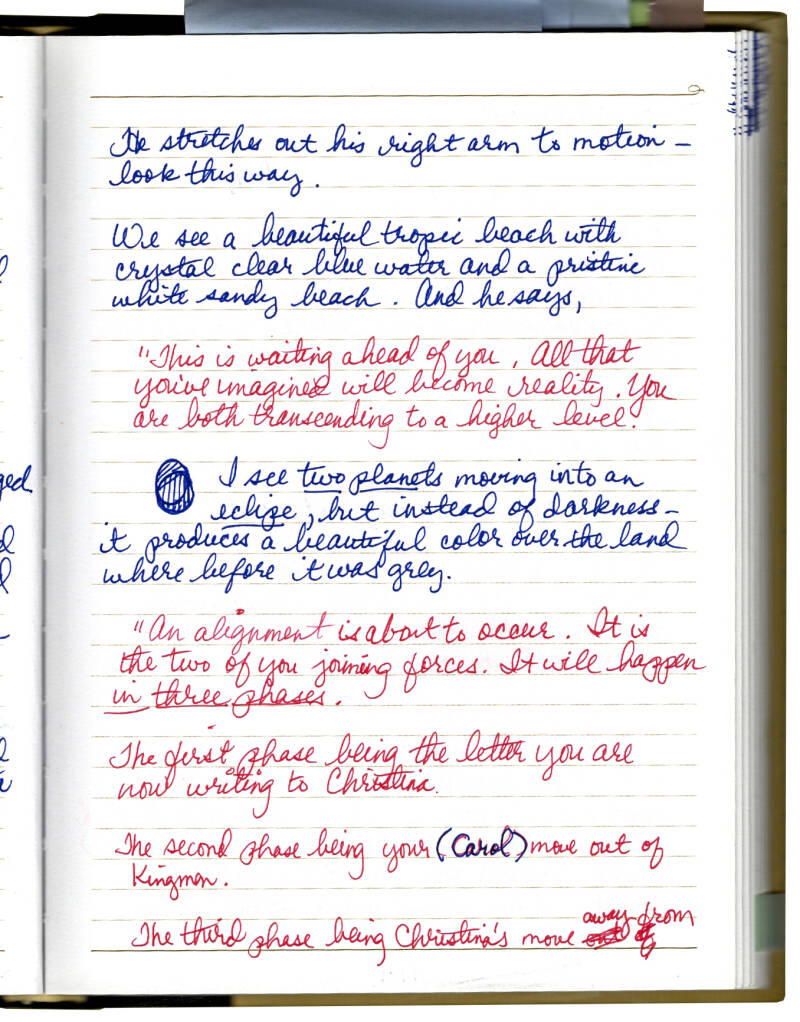 He stretches out his right arm to motion –
look this way.
We see a beautiful tropic beach with
crystal clear blue water and a pristine
white sandy beach. And he says,
"This is waiting ahead of you, All that
you've imagined will become reality. You
are both transcending to a higher level."
I see two planets moving into an
eclipse, but instead of darkness –
it produces a beautiful color over the land
where before it was grey.
"An alignment is about to occur. It is
the two of you joining forces. It will happen
in three phases.
The first phase being the letter you are
now writing to Christina.
The second phase being your (Carol) move out of
Kingman.
The third phase being Christina's move away from